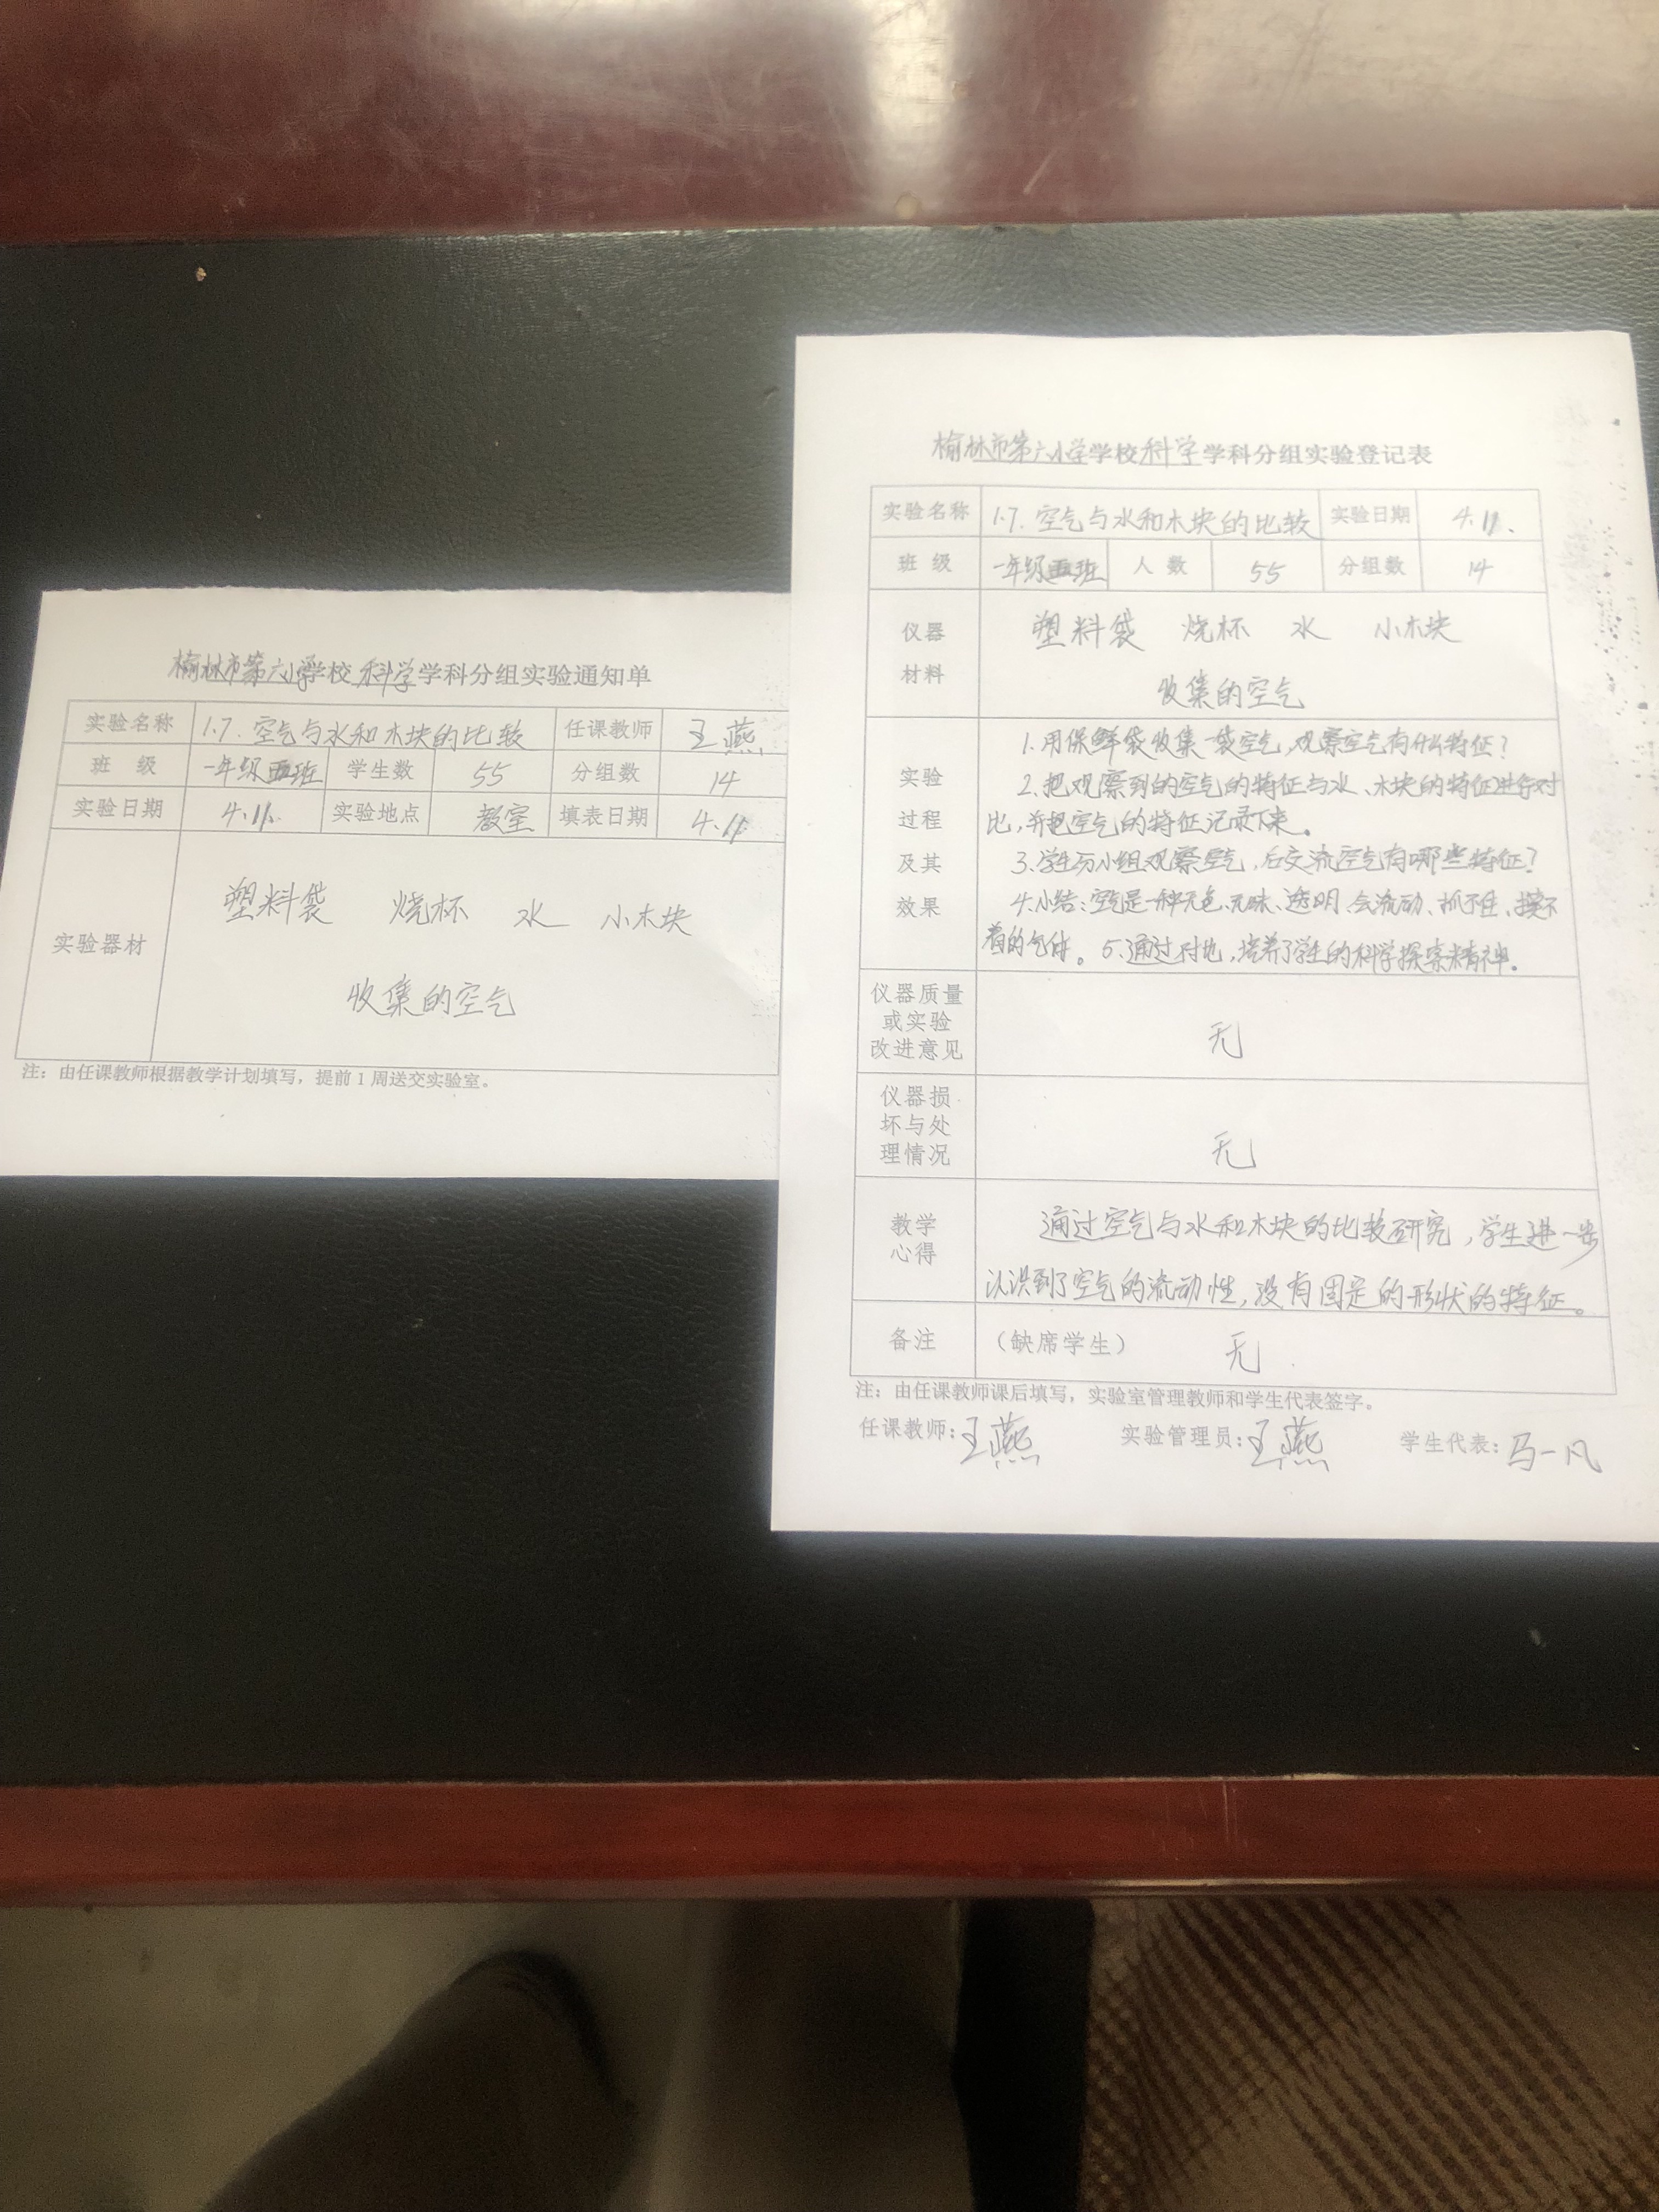 榆林市第六小学学校科学学科分组实验通知单
实验名称 1.7.空气与水和木块的比较 任课教师 王燕
班 级 一年级四班 学生数 55 分组数 14
实验日期 4.11. 实验地点 教室 填表日期 4.11
实验器材
塑料袋 烧杯 水 小木块
收集的空气
注:由任课教师根据教学计划填写,提前1周送交实验室。
榆林市第六小学学校科学学科分组实验登记表
实验名称 1.7.空气与水和木块的比较 实验日期 4.11.
班 级 一年级四班 人 数 55 分组数 14
仪器材料
塑料袋 烧杯 水 小木块
收集的空气
实验过程及其效果
1.用保鲜袋收集一袋空气,观察空气有什么特征?
2.把观察到的空气的特征与水、木块的特征进行对
比,并把空气的特征记录下来。
3.学生分小组观察空气,后交流空气有哪些特征?
4.小结:空气是一种无色、无味、透明、会流动、抓不住、摸不
着的气体。5.通过对比,培养了学生的科学探索精神。
仪器质量
或实验
改进意见
无
仪器损
坏与处
理情况
无
教学
心得
通过空气与水和木块的比较研究,学生进一步
认识到了空气的流动性,没有固定的形状的特征。
备注 (缺席学生) 无
注:由任课教师课后填写,实验室管理教师和学生代表签字。
任课教师:王燕 实验管理员:王燕 学生代表:马一凡